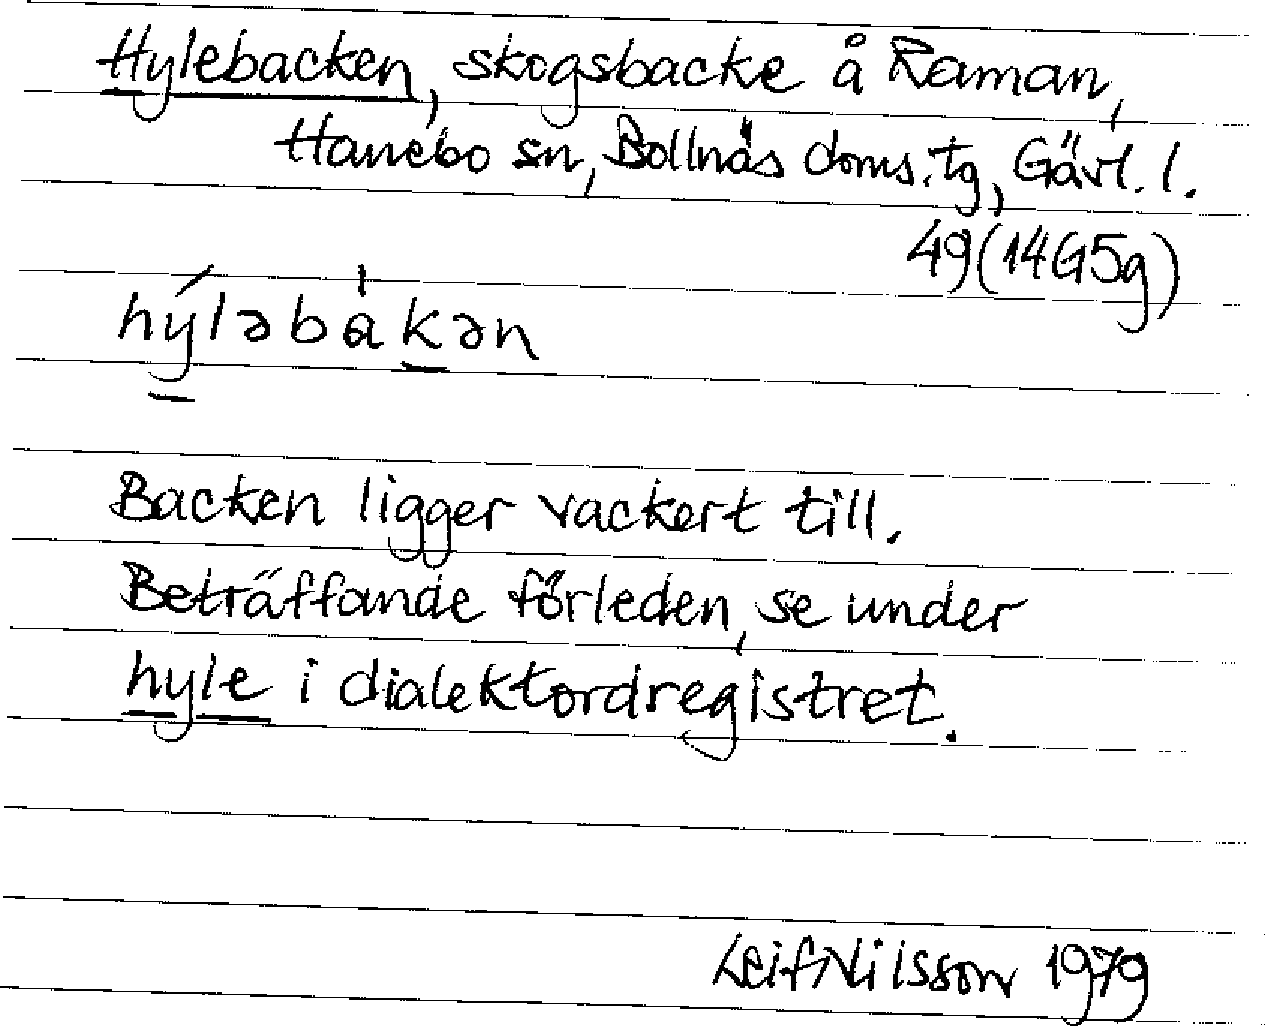 Hylebacken, skogsbacke å Raman,
Hanebo sn, Bollnäs doms.tg, Gävl. l.
49(14G5g)
hýləbàkən
Backen ligger vackert till.
Beträffande förleden, se under
hyle i dialektordregistret.
Leif Nilsson 1979